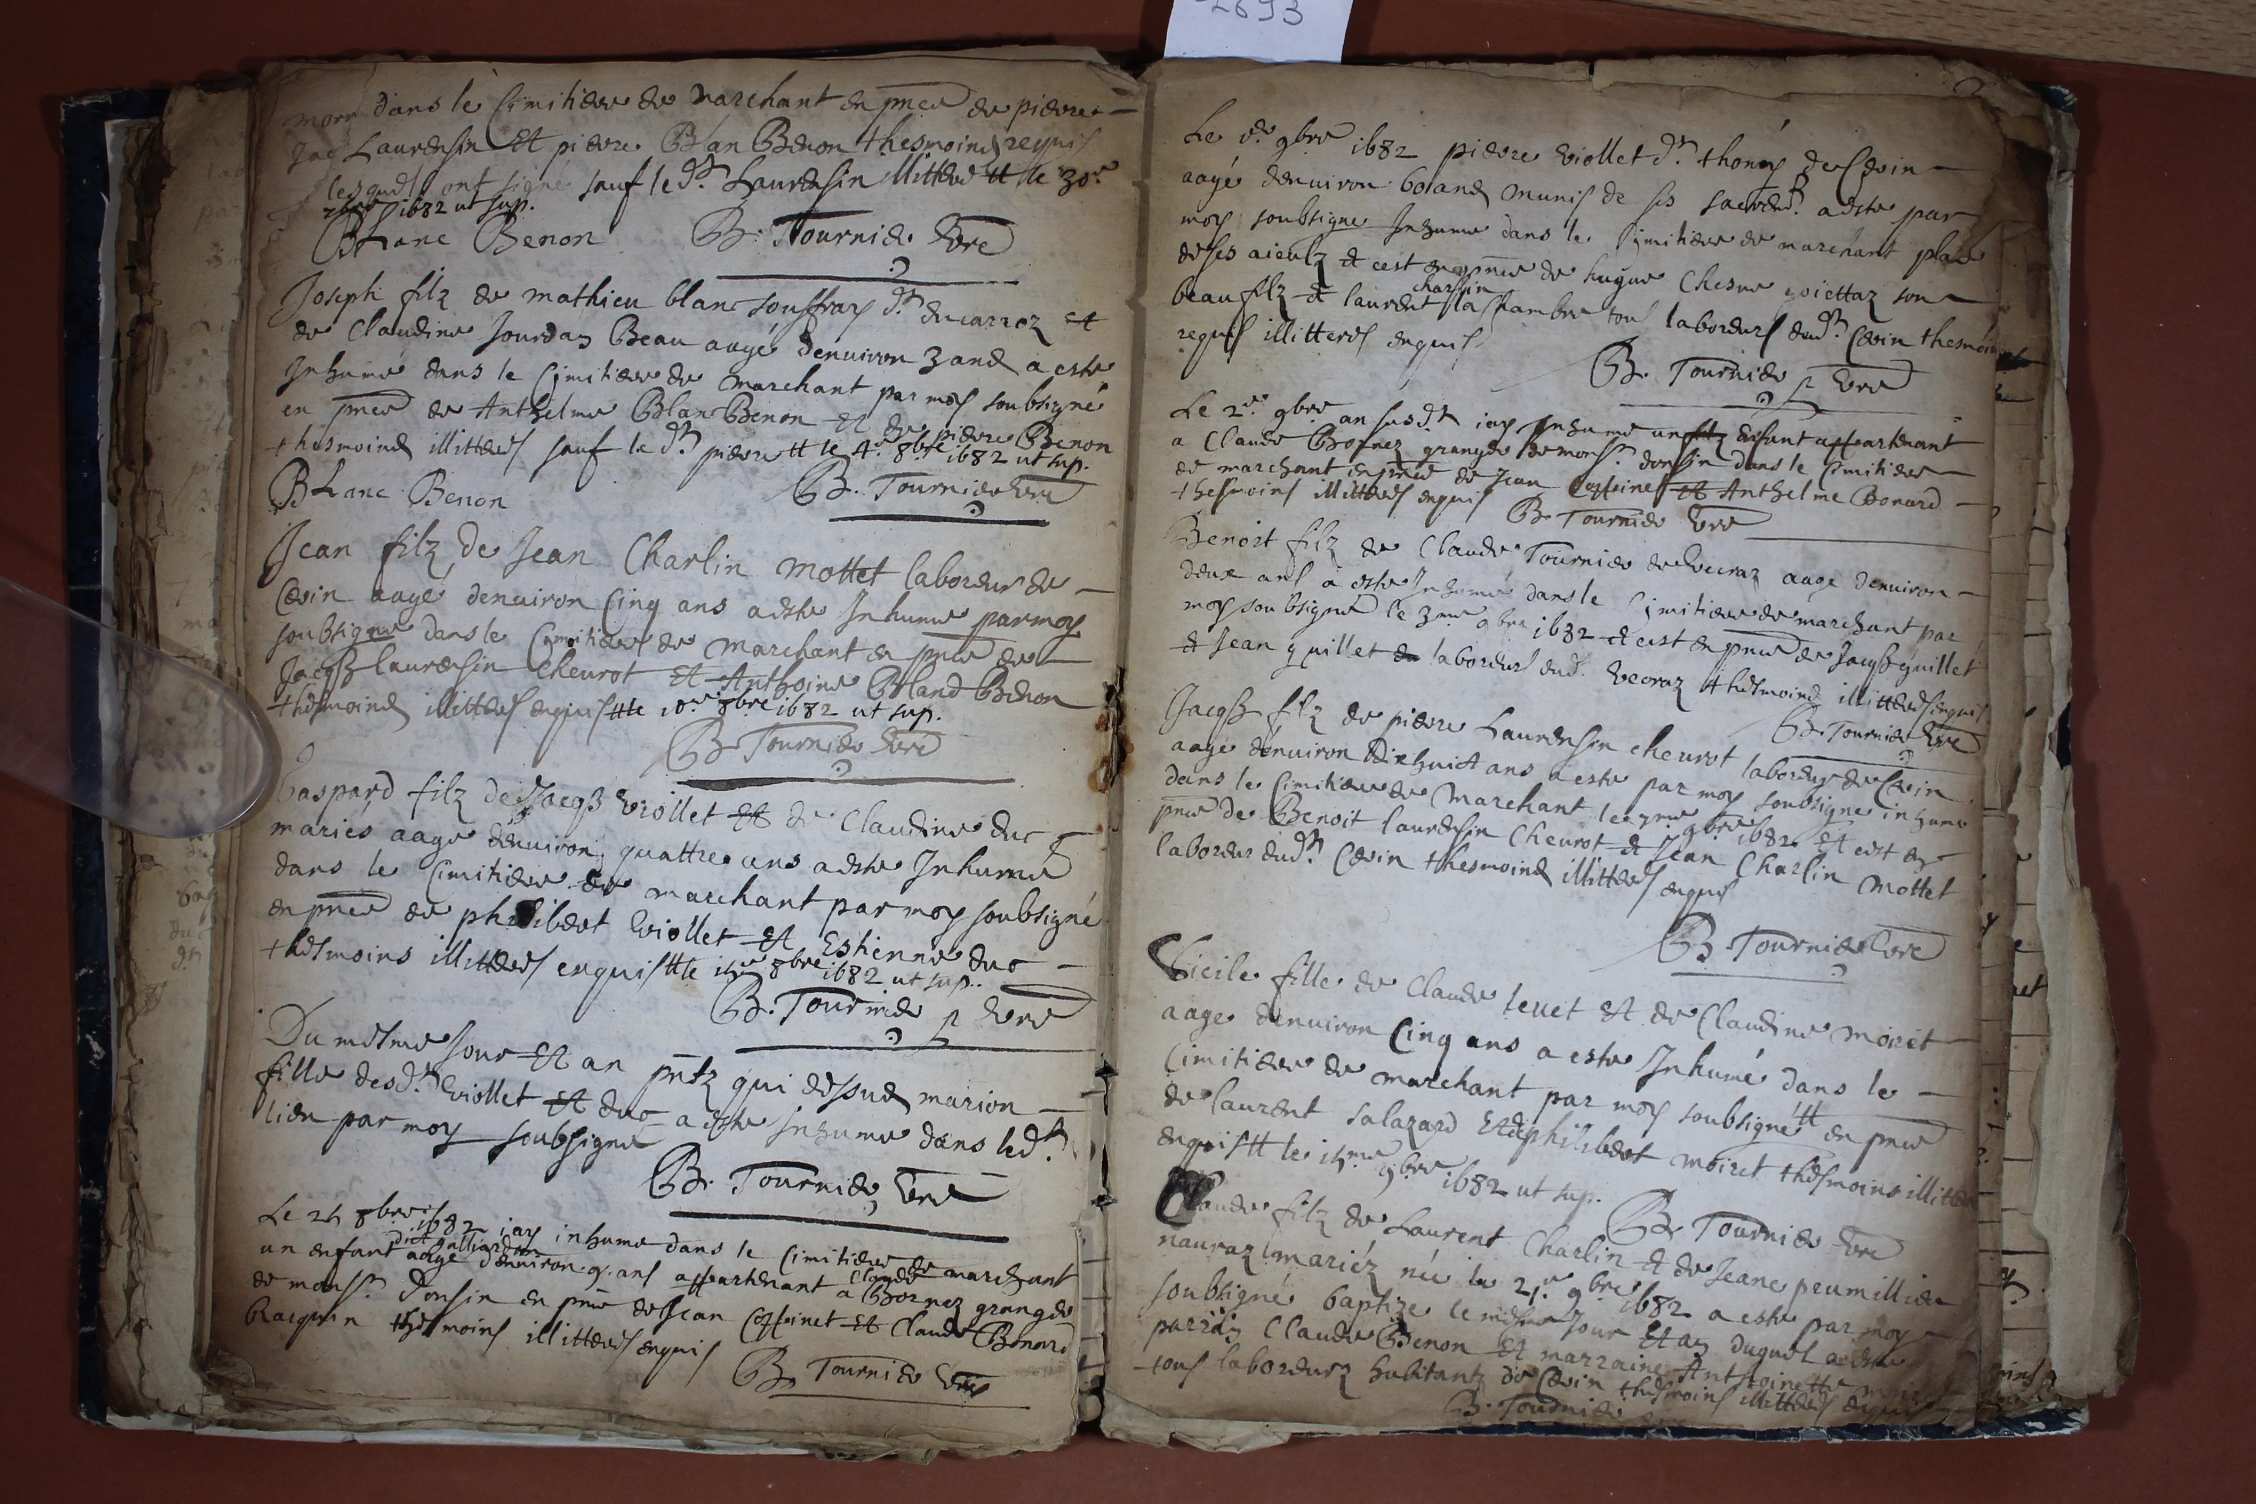 2693
dans le Cimitiere de Marchant en pnce de pierre
Jaq Laurensin Et pierre Blan Benon thesmoins requis
lesquels ont signé sauf le dt. Laurensin illitteré tt le 30e
1682 ut sup.
BLanc Benon B. Tournier Vere
Joseph filz de mathieu blanc souffray dt ducarroz et
de Claudine Jourdan Beau aagé denuiron 3 ans a esté
Inhumé dans le Cimitiere de Marchant par moy soubsigné
en pnce de Anthelme Blan Benon Et de pierre Benon
thesmoins illitterés sauf le dt pierre tt le 4e 8bre 1682 ut sup.
BLanc Benon B. Tournier Vere
Jean filz de Jean Charlin Mottet laboreur de
Cevin aagé denuiron Cinq ans a esté Inhumé par moy
soubsigné dans le Cimitiere de Marchant en pnce de
Jacqs laurensin cheurot Et Anthoine Bland Benon
thesmoins illitterés enquis tt le 10e 8bre 1682 ut sup.
B. Tournier Vere
Gaspard filz de Jacqs Viollet Et de Claudine duc
mariés aagé denuiron quattre ans a esté Inhumé
dans le Cimitiere de marchant par moy soubsigné
en pnce de philibert Viollet Et Estienne duc
thesmoins illitterés enquis tt le 8bre 1682 ut sup.
B. Tournier Vere
Du mesme Jour Et an pntz qui dessus marion
fille desdt Viollet Et duc a esté Inhumé dans ledt.
lieu par moy soubsigné
B. Tournier Vere
Le 24 8bre 1682 iay inhumé dans le Cimitiere de marchant
un enfant aagé denuiron 9. ans appartenant a Claude Bornez granger
de monsr. Donsin en pnce de Jean Coffinet Et Claude Bonard
thesmoins illitterés enquis
B. Tournier Vere
Le 9bre 1682 pierre Viollet dt. thomy de Cevin
aagé denuiron 60 ans munis de ses sacremts. a esté par
moy soubsigné Inhumé dans le Cimitiere de marchant place
de ses aieulz et cest en pnce de hugue Chesne voiettaz son
charlin
beaufilz et laurent la Chambre tous laboreurs dudt. Cevin thesmoins
requis illitterés enquis
B. Tournier Vere
Le 2e 9bre an susdt iay Inhumé un Enfant appartenant
a Claude Bornez granger de monsr. donsin dans le Cimitiere
de marchant en pnce de Jean Coffinet Et Anthelme Bonard
thesmoins illitterés enquis B. Tournier Vere
Benoit filz de Claude Tournier de Vecraz aagé denuiron
deux ans a esté Inhumé dans le Cimitiere de marchant par
moy soubsigné le 3me 9bre 1682 et cest en pnce de Jacqs quillet
et Jean quillet laboreurs dudt. Vecraz thesmoins illitterés enquis
B. Tournier Vere
Jacqs filz de pierre Laurensin cheurot laboreur de Cevin
aagé denuiron Dixhuict ans a esté par moy soubsigné inhumé
dans le Cimitiere de Marchant le 7me 9bre 1682 Et cest en
pnce de Benoit laurensin Cheurot et Jean Charlin Mottet
laboreur dudt. Cevin thesmoins illitterés enquis
B. Tournier Vere
Cicile fille de Claude leuet Et de Claudine Moiret
aagé denuiron Cinq ans a esté Inhumé dans le
Cimitiere de marchant par moy soubsigné tt en pnce
de laurent salazard Et de philibert moiret thesmoins illitterés
enquis tt le 9bre 1682 ut sup.
B. Tournier Vere
Claude filz de Laurent Charlin et de Jeane peumillieu
nauraz mariéz née le 21e 9bre 1682 a esté par moy
soubsigné baptize le mesme Jour Et an duquel a esté
parrain Claude Benon Et marraine Anthoinette
tous laboreurz habitantz de Cevin thesmoins illitterés enquis
B. Tournier